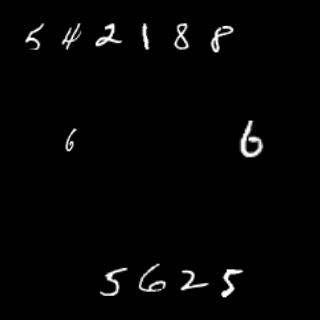 542188
6 6
5625